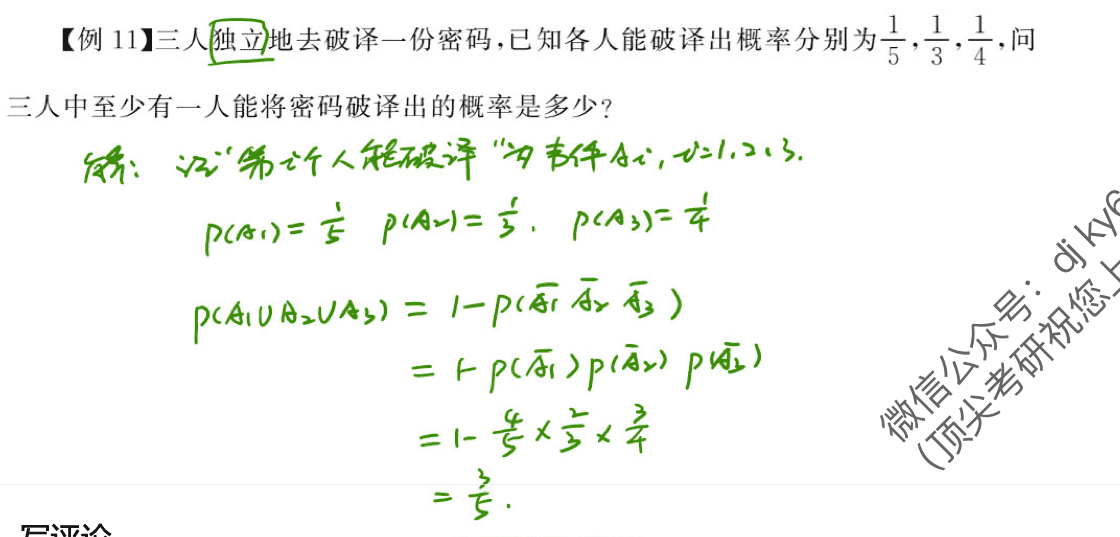 【例 11】三人独立地去破译一份密码,已知各人能破译出概率分别为1/5,1/3,1/4,问
三人中至少有一人能将密码破译出的概率是多少?
解: 记"第i个人能破译"为事件Ai, i=1,2,3.
P(A₁)=1/5 P(A₂)=1/3. P(A₃)=1/4
P(A₁∪A₂∪A₃) = 1-P(Ā₁ Ā₂ Ā₃)
= 1-P(Ā₁)P(Ā₂)P(Ā₃)
=1-4/5×2/3×3/4
=3/5.
微信公众号: djky6
(顶尖考研祝您上
写评论